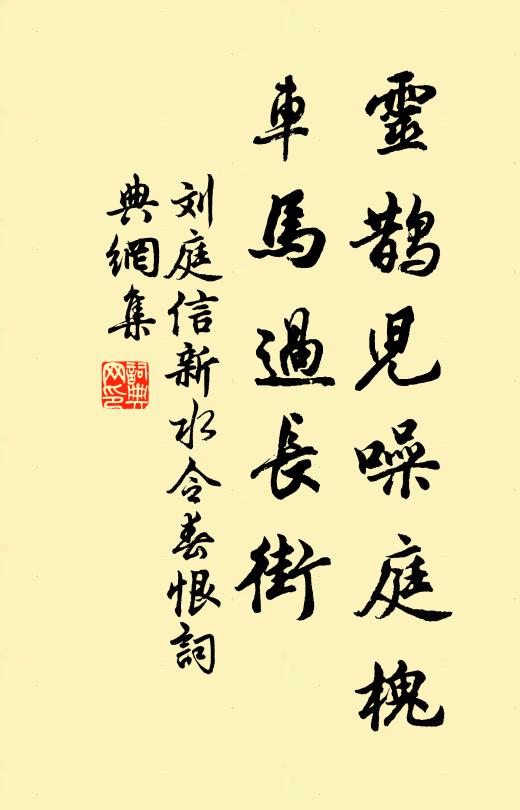 靈鵲児噪庭槐
車馬過長街
刘庭信新水令春恨詞
典網集
詞典网印